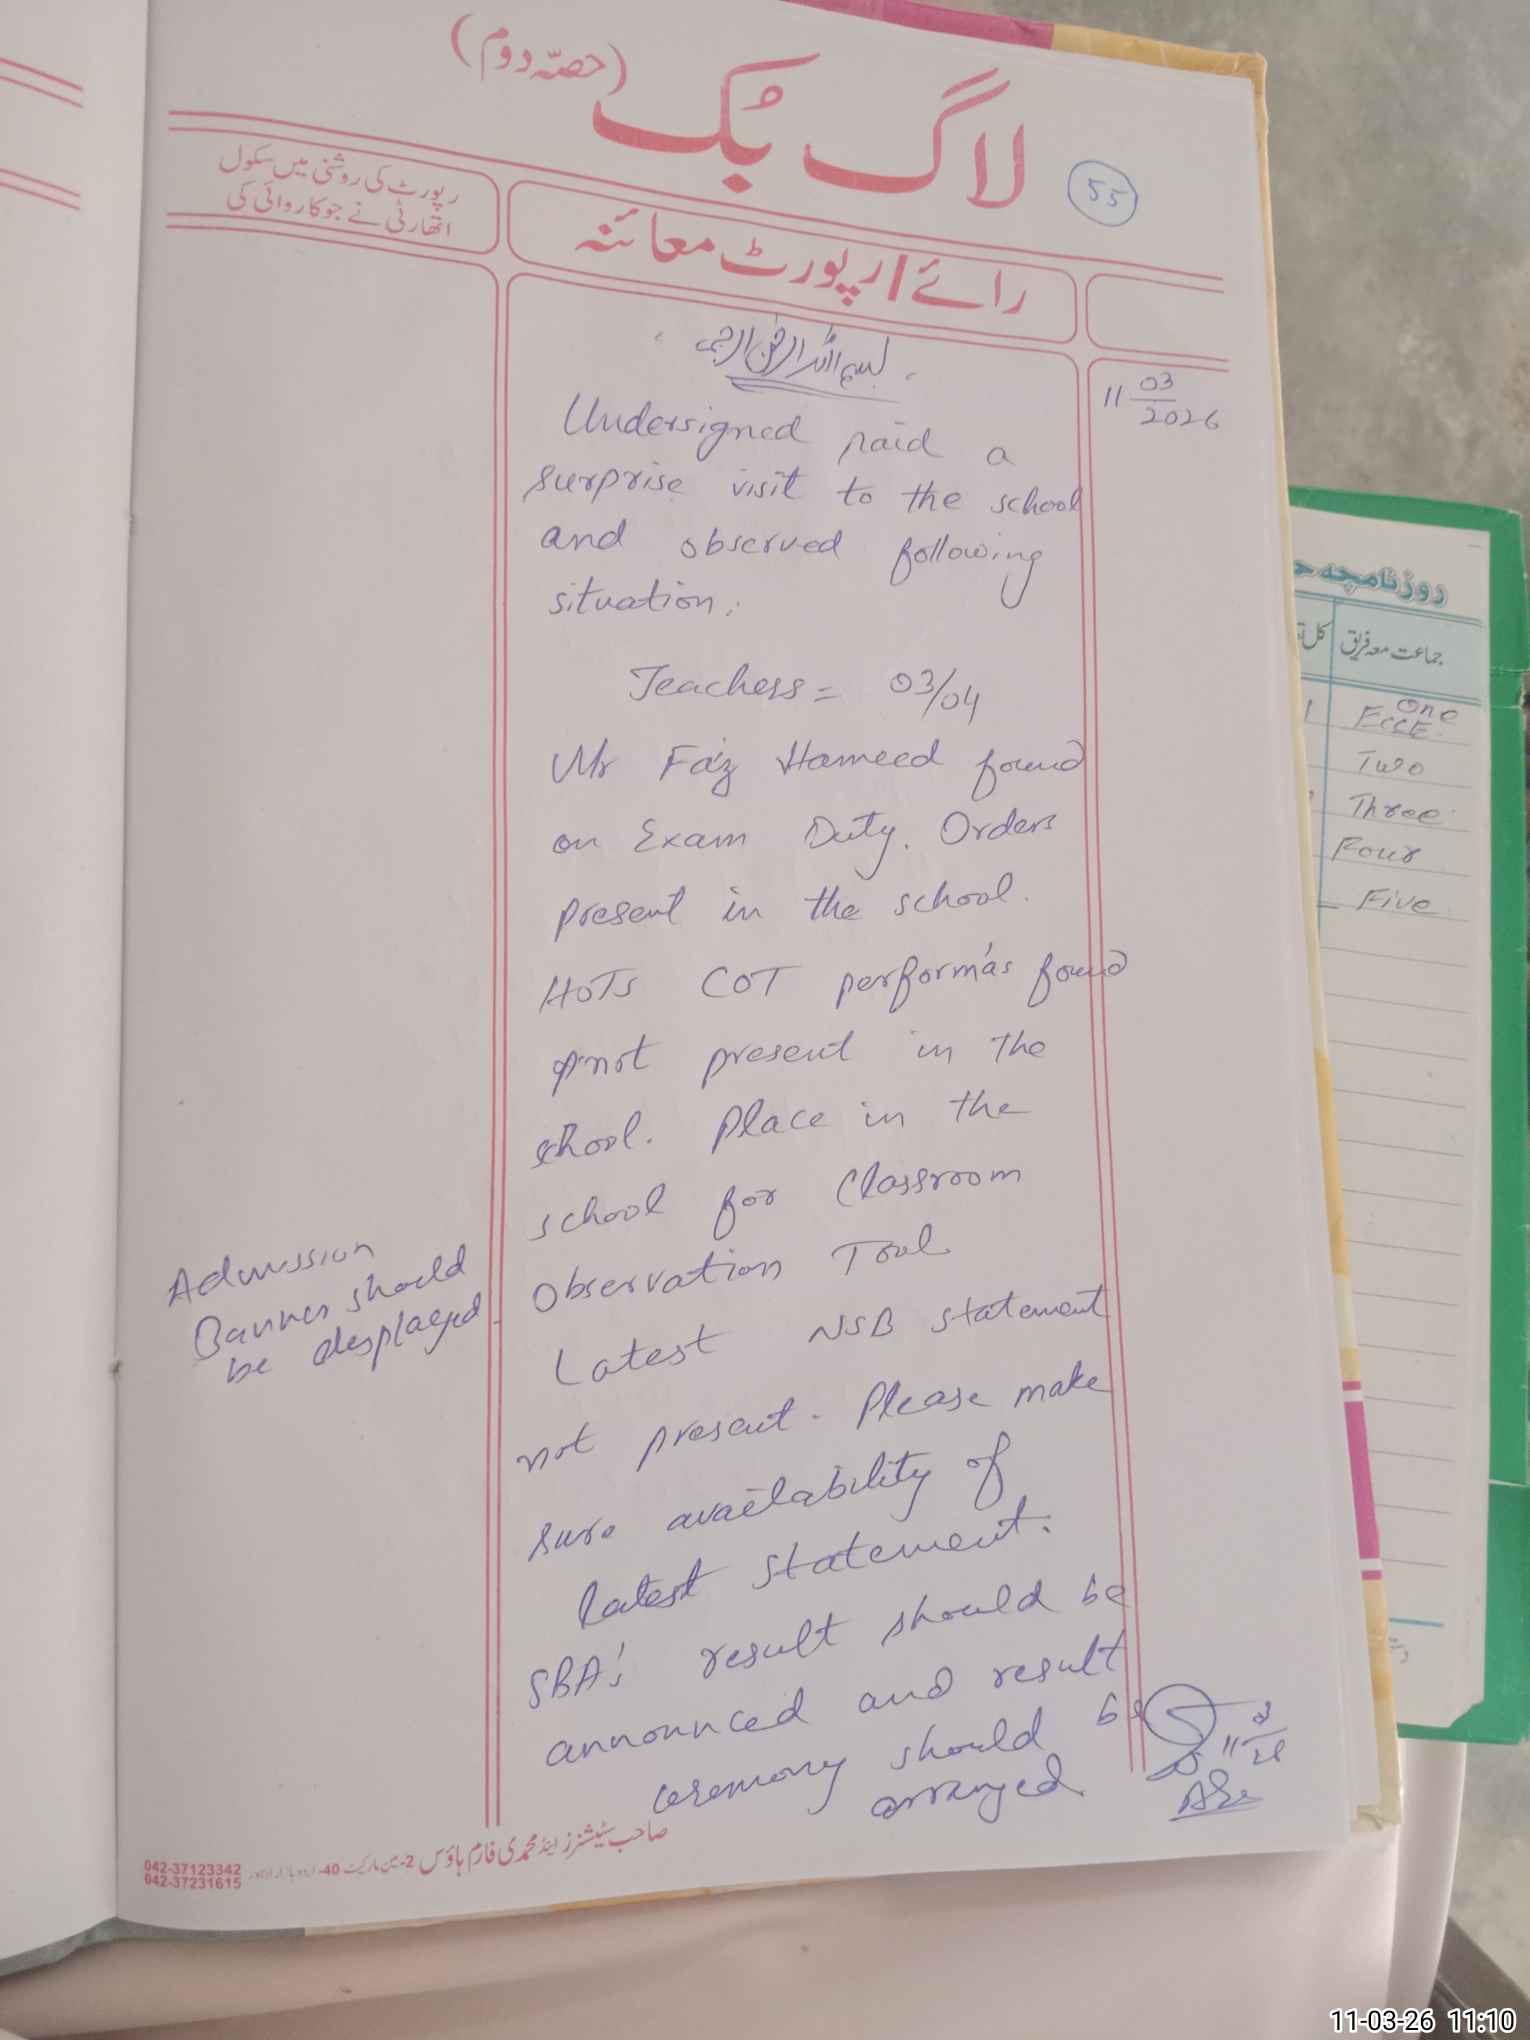 لاگ بُک (حصّہ دوم)
55
رپورٹ کی روشنی میں سکول
اتھارٹی نے جو کاروائی کی
رائے / رپورٹ معائنہ
بسم اللہ الرحمٰن الرحیم
11 03/2026
Undersigned paid a
surprise visit to the school
and observed following
situation:
Teachers = 03/04
Mr Faiz Hameed found
on Exam Duty. Orders
present in the school.
HOTS COT performa's found
not present in the
school. Place in the
school for Classroom
Observation Tool.
Latest NSB statement
not present. Please make
sure availability of
latest statement.
SBA's result should be
announced and result
ceremony should be
arranged
Admission
Banner should
be desplaeyed
11 3/26
صاحب سٹیشنرز اینڈ محمدی فارم ہاؤس 2- مین مارکیٹ 40- اردو بازار لاہور
042-37123342
042-37231615
روزنامچہ
جماعت معہ فریق
کل
One
ECCE
Two
Three
Four
Five
11-03-26 11:10